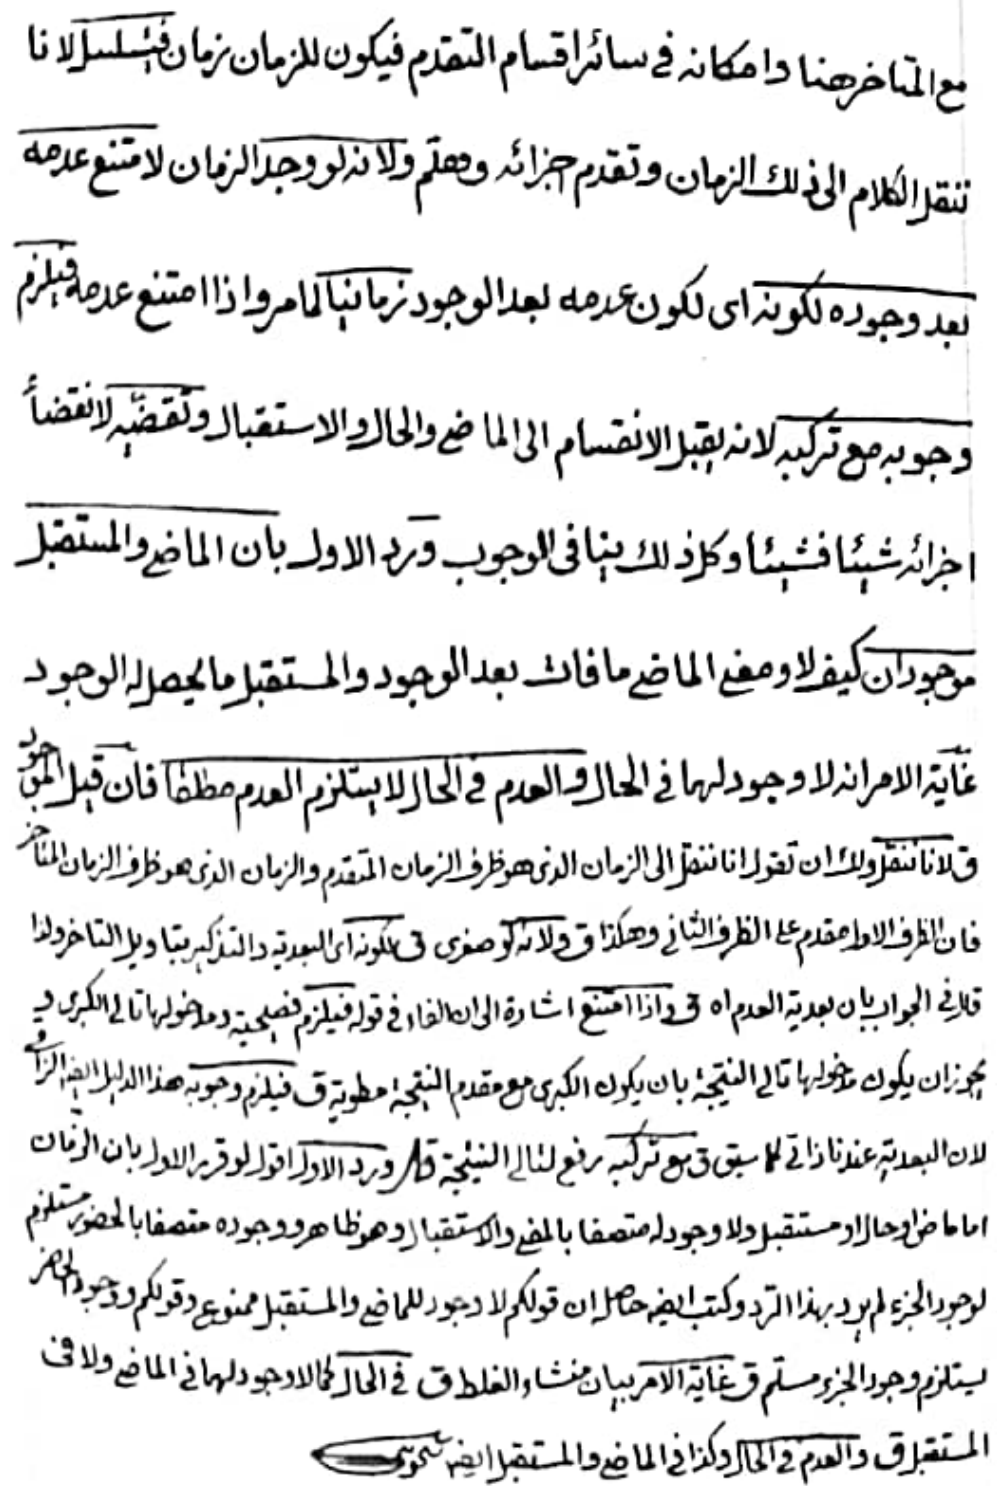 مع المتاخر هنا وامكانه في سائر اقسام التقدم فيكون للزمان زمان فيتسلسل لانا
ننقل الكلام الى ذلك الزمان وتقدم اجزائه وهلم ولانه لو وجد الزمان لامتنع عدمه
بعد وجوده لكونه اى لكون عدمه بعد الوجود زمانيا لما مر واذا امتنع عدمه فيلزم
وجوبه مع تركبه لانه يقبل الانقسام الى الماضي والحال والاستقبال وتقضيه لانقضاء
اجزائه شيئا فشيئا وكل ذلك ينافى الوجوب ورد الاول بان الماضي والمستقبل
موجودان كيف لا ومعنى الماضي ما فات بعد الوجود والمستقبل ما يحصل له الوجود
غاية الامر انه لا وجود لهما في الحال والعدم في الحال لا يستلزم العدم مطلقا فان قيل الموجود
ق لانا ننقل ولك ان تقول انا ننقل الى الزمان الذى هو ظرف الزمان المتقدم والزمان الذى هو ظرف الزمان المتاخر
فان الظرف الاول مقدم على الظرف الثاني وهكذا ق ولانه لو صغرى ق لكونه اى البعدية والتذكير بتاويل التاخر ولذا
قال في الجواب بان بعدية العدم اه ق واذا امتنع اشارة الى ان الفاء في قوله فيلزم فصيحية ومدخولها تالي الكبرى و
يجوز ان يكون مدخولها تالي النتيجة بان يكون الكبرى مع مقدم النتيجة مطوية ق فيلزم وجوبه هذا الدليل ايضا الزا
لان البعدية عندنا ذاتي كما سبق ق مع تركبه رفع لتالي النتيجة قال ورد الاول اقول لو قرر الاول بان الزمان
اما ماض او حال او مستقبل ولا وجود له متصفا بالمضي والاستقبال وهو ظاهر ووجوده متصفا بالحضور مستلزم
لوجود الجزء لم يرد بهذا الرد وكتب ايضا حاصله ان قولكم لا وجود للماضي والمستقبل ممنوع وقولكم ووجود الحاضر
يستلزم وجود الجزء مسلم ق غاية الامر بيان منشاء الغلط ق في الحال كما لا وجود لهما في الماضي ولا في
المستقبل ق والعدم في الحال وكذا في الماضي والمستقبل ايضا